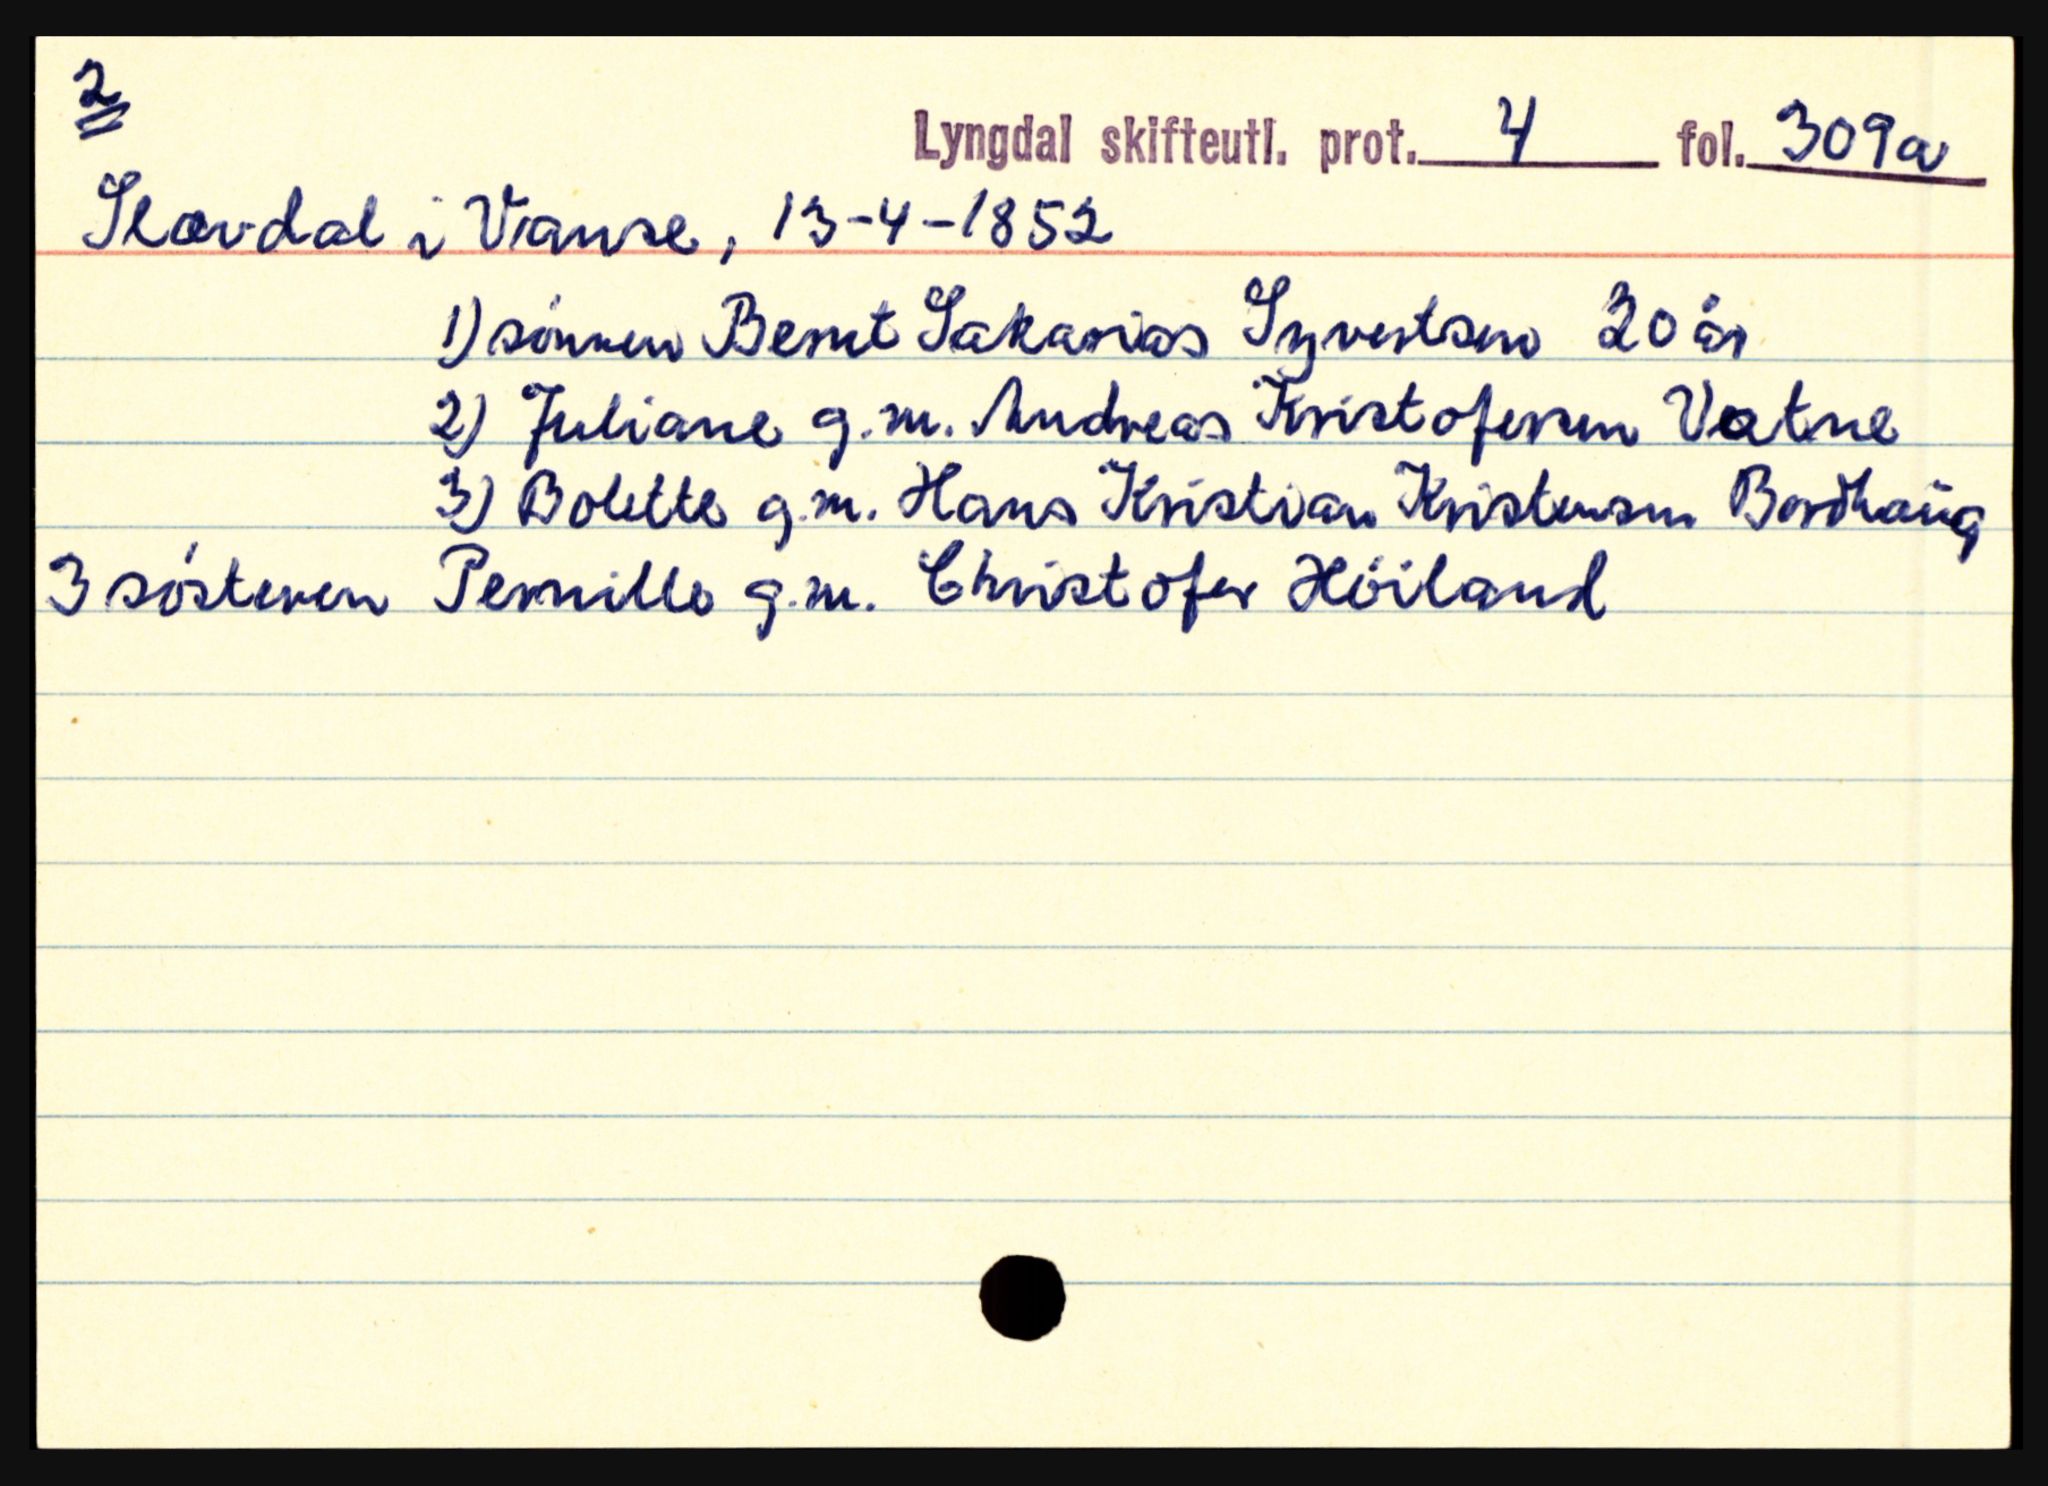 2
Lyngdal skifteutl. prot. 4 fol. 309a
Slævdal i Vanse, 13-4-1852
1) sönnen Bernt Sakarias Syvertsen 20 år
2) Juliane g.m. Andreas Kristofersen Vatne
3) Bolette g.m. Hans Kristian Kristensen Bordhaug
3 sösteren Pernille g.m. Christofer Höiland